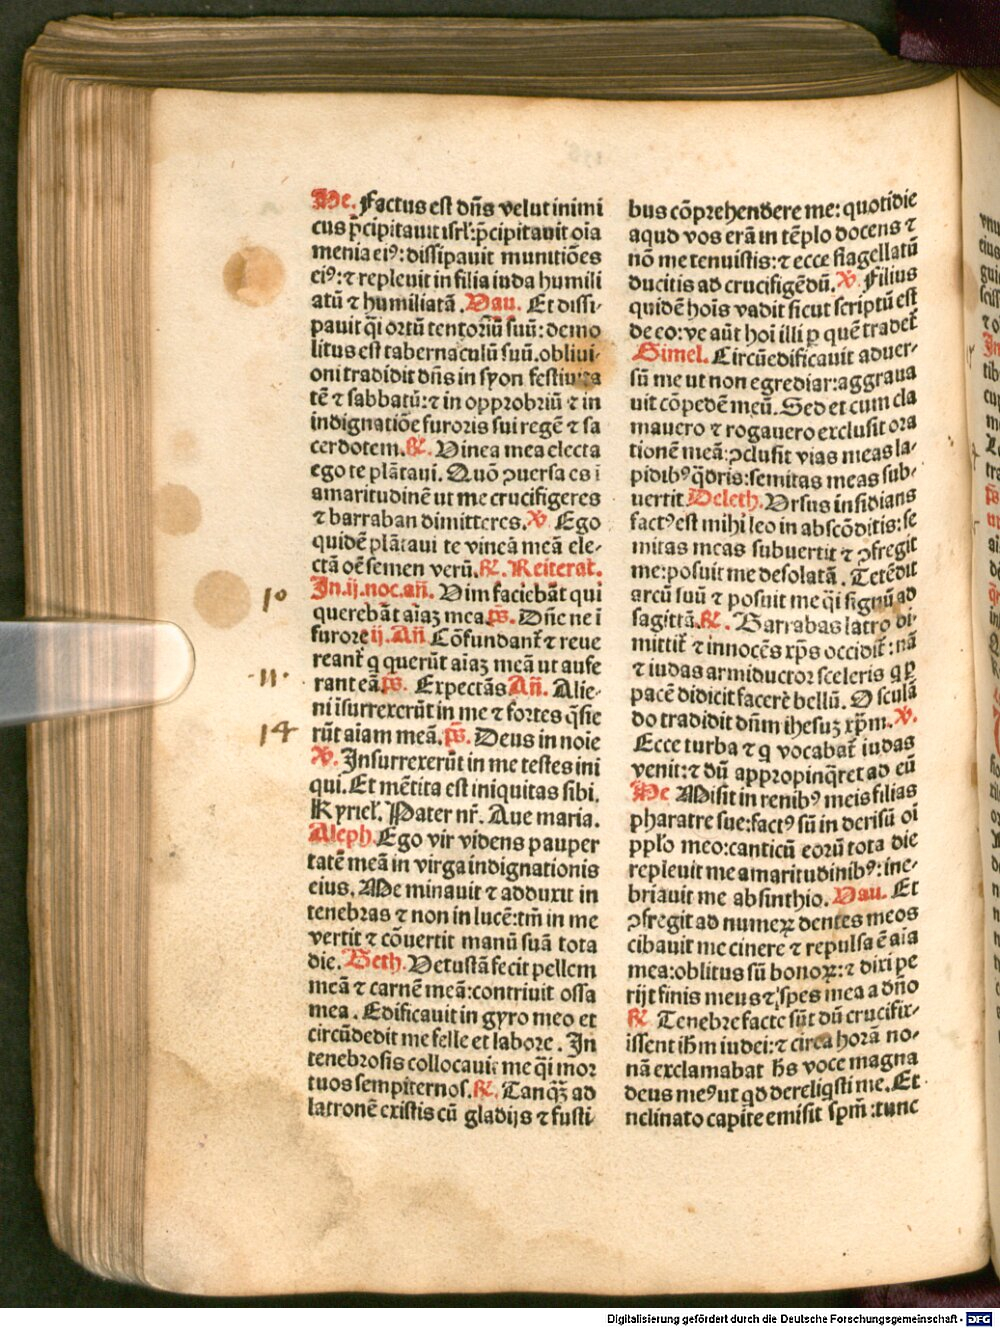 He. Factus est dn̄s velut inimi
cus p̄cipitauit isrl̄:p̄cipitauit oīa
menia eiꝰ: dissipauit munitiōes
eiꝰ:⁊ repleuit in filia iuda humili
atū ⁊ humiliatā. Vau. Et dissi⸗
pauit q̄i ortū tentoriū suū: demo
litus est tabernaculū suū.obliui⸗
oni tradidit dn̄s in syon festiuita
tē ⁊ sabbatū:⁊ in opprobriū ⁊ in
indignatiōe furoris sui regē ⁊ sa
cerdotem. ℟. Vinea mea electa
ego te plātaui. Quō ↄuersa es ī
amaritudinē ut me crucifigeres
⁊ barraban dimitteres. ℣. Ego
quidē plātaui te vineā meā ele⸗
ctā oē semen verū. ℟. Reiterat̄.
In.ij.noc.an̄. Vim faciebāt qui
10 querebāt aīaꝫ mea.ps̄. Dn̄e ne ī
furore ij. An̄ Cōfundant᷑ ⁊ reue
reant᷑ q querūt aīaꝫ meā ut aufe
·11· rant eā.ps̄. Expectās An̄. Alie⸗
ni īsurrexerūt in me ⁊ fortes q̄sie
14 rūt aīam meā. ps̄. Deus in noīe
℣. Insurrexerūt in me testes ini
qui. Et mētita est iniquitas sibi.
Kyriel̄. Pater nr̄. Aue maria.
Aleph. Ego vir videns pauper
tatē meā in virga indignationis
eius. Me minauit ⁊ adduxit in
tenebras ⁊ non in lucē:tm̄ in me
vertit ⁊ cōuertit manū suā tota
die. Beth. Vetustā fecit pellem
meā ⁊ carnē meā:contriuit ossa
mea. Edificauit in gyro meo et
circūdedit me felle et labore. In
tenebrosis collocauit me q̄i mor
tuos sempiternos. ℟. Tanqꝫ̄ ad
latronē existis cū gladijs ⁊ fusti
bus cōprehendere me: quotidie
aqud vos erā in tēplo docens ⁊
nō me tenuistis:⁊ ecce flagellatū
ducitis ad crucifigēdū. ℣. Filius
quidē hoīs vadit sicut scriptū est
de eo:ve aūt hoī illi ꝑ quē tradet᷑
Gimel. Circūedificauit aduer⸗
sū me ut non egrediar:aggraua
uit cōpedē meū. Sed et cum cla
mauero ⁊ rogauero exclusit ora
tionē meā:ↄclusit vias meas la⸗
pidibꝰ q̄dris:semitas meas sub⸗
uertit Deleth. Vrsus insidians
factꝰ est mihi leo in abscōditis:se
mitas meas subuertit ⁊ ↄfregit
me:posuit me desolatā. Tetēdit
arcū suū ⁊ posuit me q̄i signū ad
sagittā. ℟. Barrabas latro di⸗
mittit᷑ ⁊ innocēs xp̄s occidit᷑:nā
⁊ iudas armiductor sceleris q ꝑ
pacē didicit facere bellū. Osculā
do tradidit dn̄m ihesuꝫ xp̄m. ℣.
Ecce turba ⁊ q vocabat᷑ iudas
venit:⁊ dū appropinq̄ret ad eū
He Misit in renibꝰ meis filias
pharatre sue:factꝰ sū in derisū oī
pplo̅ meo:canticū eorū tota die
repleuit me amaritudinibꝰ:ine⸗
briauit me absinthio. Vau. Et
ↄfregit ad numeꝝ dentes meos
cibauit me cinere ⁊ repulsa ē aīa
mea:oblitus sū bonoꝝ:⁊ dixi pe
rijt finis meus ⁊ spes mea a dn̄o
℟. Tenebre facte sūt dū crucifix⸗
issent ih̄m iudei:⁊ circa horā no⸗
nā exclamabat ih̄s voce magna
deus meꝰ ut qd dereliqsti me. Et
nclinato capite emisit spm̄:tunc
Digitalisierung gefördert durch die Deutsche Forschungsgemeinschaft - DFG